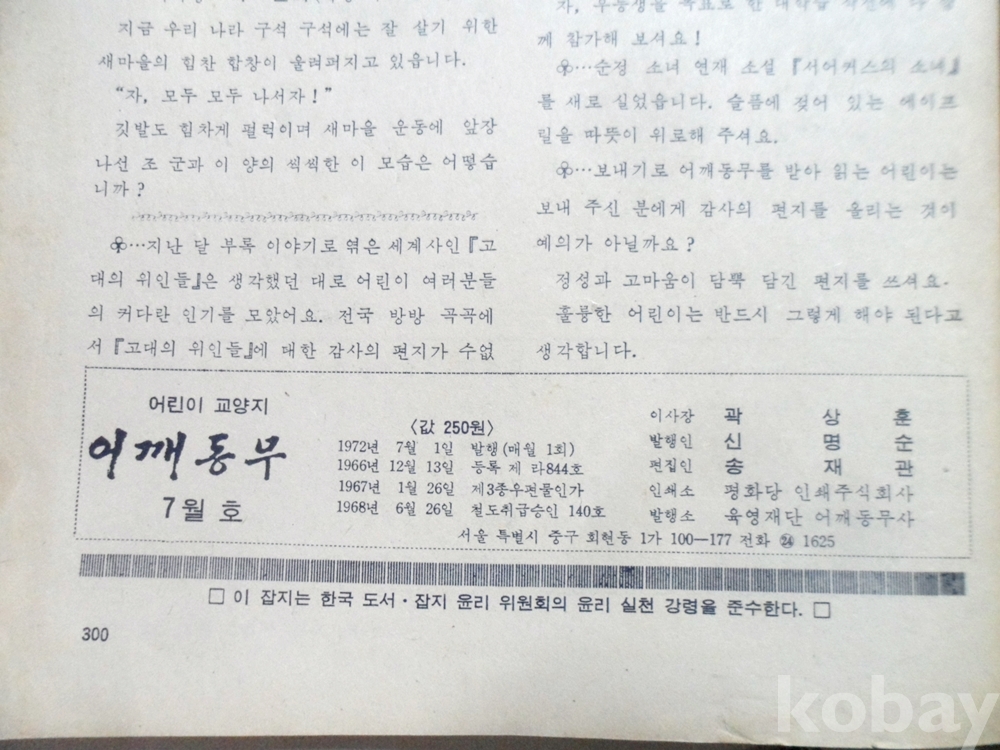 지금 우리 나라 구석 구석에는 잘 살기 위한
새마을의 힘찬 합창이 울려퍼지고 있읍니다.
“자, 모두 모두 나서자!”
깃발도 힘차게 펄럭이며 새마을 운동에 앞장
나선 조 군과 이 양의 씩씩한 이 모습은 어떻습
니까?
…지난 달 부록 이야기로 엮은 세계사인『고
대의 위인들』은 생각했던 대로 어린이 여러분들
의 커다란 인기를 모았어요. 전국 방방 곡곡에
서『고대의 위인들』에 대한 감사의 편지가 수없
께 참가해 보셔요!
…순정 소녀 연재 소설『서어커스의 소녀』
를 새로 실었읍니다. 슬픔에 젖어 있는 에이프
릴을 따뜻이 위로해 주셔요.
…보내기로 어깨동무를 받아 읽는 어린이는
보내 주신 분에게 감사의 편지를 올리는 것이
예의가 아닐까요?
정성과 고마움이 담뿍 담긴 편지를 쓰셔요.
훌륭한 어린이는 반드시 그렇게 해야 된다고
생각합니다.
어린이 교양지
어깨동무
7월호
〈값 250원〉
1972년 7월 1일 발행(매월 1회)
1966년 12월 13일 등록 제 라844호
1967년 1월 26일 제3종우편물인가
1968년 6월 26일 철도취급승인 140호
이사장 곽상훈
발행인 신명순
편집인 송재관
인쇄소 평화당 인쇄주식회사
발행소 육영재단 어깨동무사
서울 특별시 중구 회현동 1가 100—177 전화 ㉔ 1625
□ 이 잡지는 한국 도서·잡지 윤리 위원회의 윤리 실천 강령을 준수한다. □
300
kobay